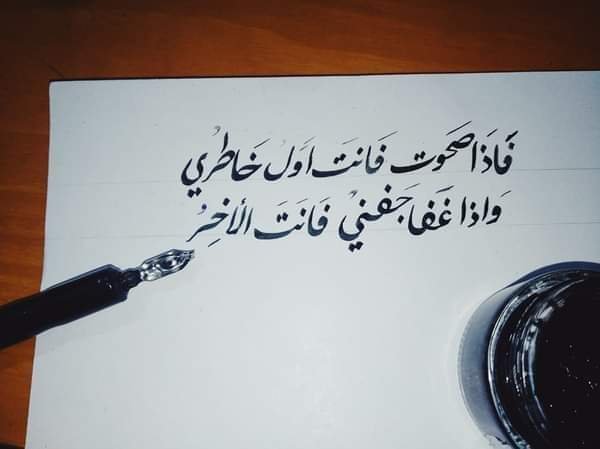 فَاذَا صَحَوت فَانتَ اَول خَاطرِي
وَاذا غَفَا جَفنيْ فَانَتَ الأخِرُ